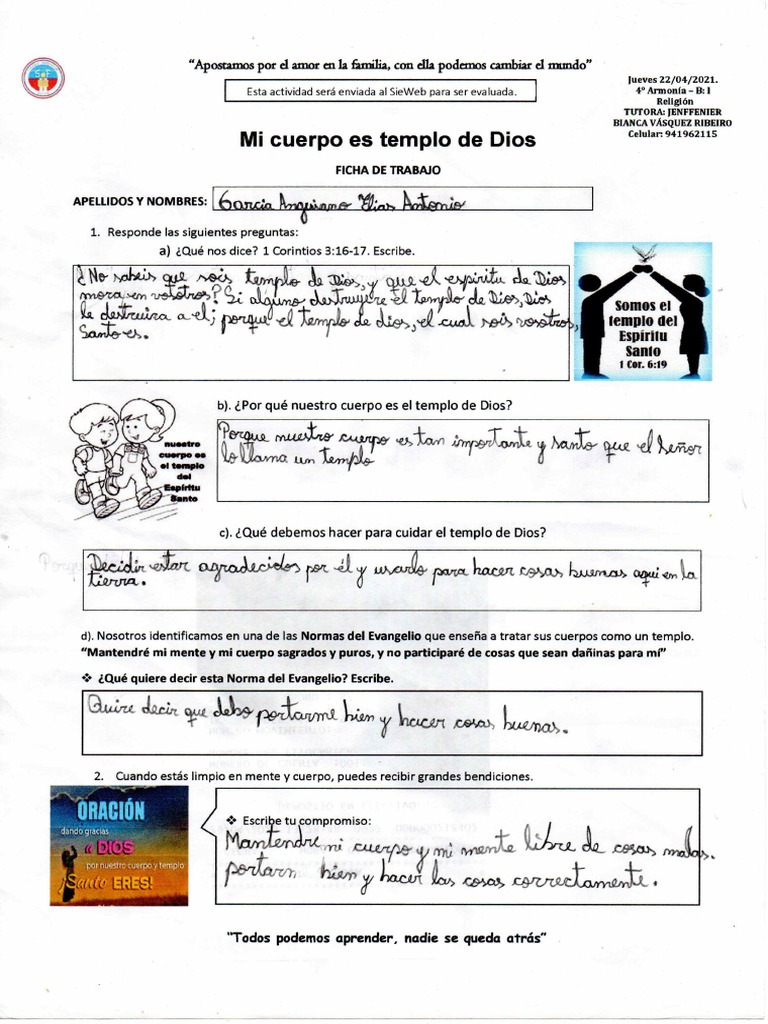 "Apostamos por el amor en la familia, con ella podemos cambiar el mundo"
Esta actividad será enviada al SieWeb para ser evaluada.
Jueves 22/04/2021.
4º Armonía – B: I
Religión
TUTORA: JENFFENIER
BIANCA VÁSQUEZ RIBEIRO
Celular: 941962115
Mi cuerpo es templo de Dios
FICHA DE TRABAJO
APELLIDOS Y NOMBRES: Garcia Anguiano Elias Antonio
1. Responde las siguientes preguntas:
a) ¿Qué nos dice? 1 Corintios 3:16-17. Escribe.
¿No sabeis que sois templo de Dios, y que el espiritu de Dios
mora en vosotros? Si alguno destruyere el templo de Dios, Dios
le destruira a el; porque el templo de dios, el cual sois vosotros,
Santo es.
Somos el
templo del
Espíritu
Santo
1 Cor. 6:19
b). ¿Por qué nuestro cuerpo es el templo de Dios?
Porque nuestro cuerpo es tan importante y santo que el Señor
lo llama un templo
nuestro
cuerpo es
el templo
del
Espíritu
Santo
c). ¿Qué debemos hacer para cuidar el templo de Dios?
Decidir estar agradecidos por él y usarlo para hacer cosas buenas aqui en la
tierra.
d). Nosotros identificamos en una de las Normas del Evangelio que enseña a tratar sus cuerpos como un templo.
"Mantendré mi mente y mi cuerpo sagrados y puros, y no participaré de cosas que sean dañinas para mí"
❖ ¿Qué quiere decir esta Norma del Evangelio? Escribe.
Quire decir que debo portarme bien y hacer cosas buenas.
2. Cuando estás limpio en mente y cuerpo, puedes recibir grandes bendiciones.
ORACIÓN
dando gracias
a DIOS
por nuestro cuerpo y templo
¡Santo ERES!
❖ Escribe tu compromiso:
Mantendre mi cuerpo y mi mente libre de cosas malas.
portarn bien y hacer las cosas correctamente.
"Todos podemos aprender, nadie se queda atrás"